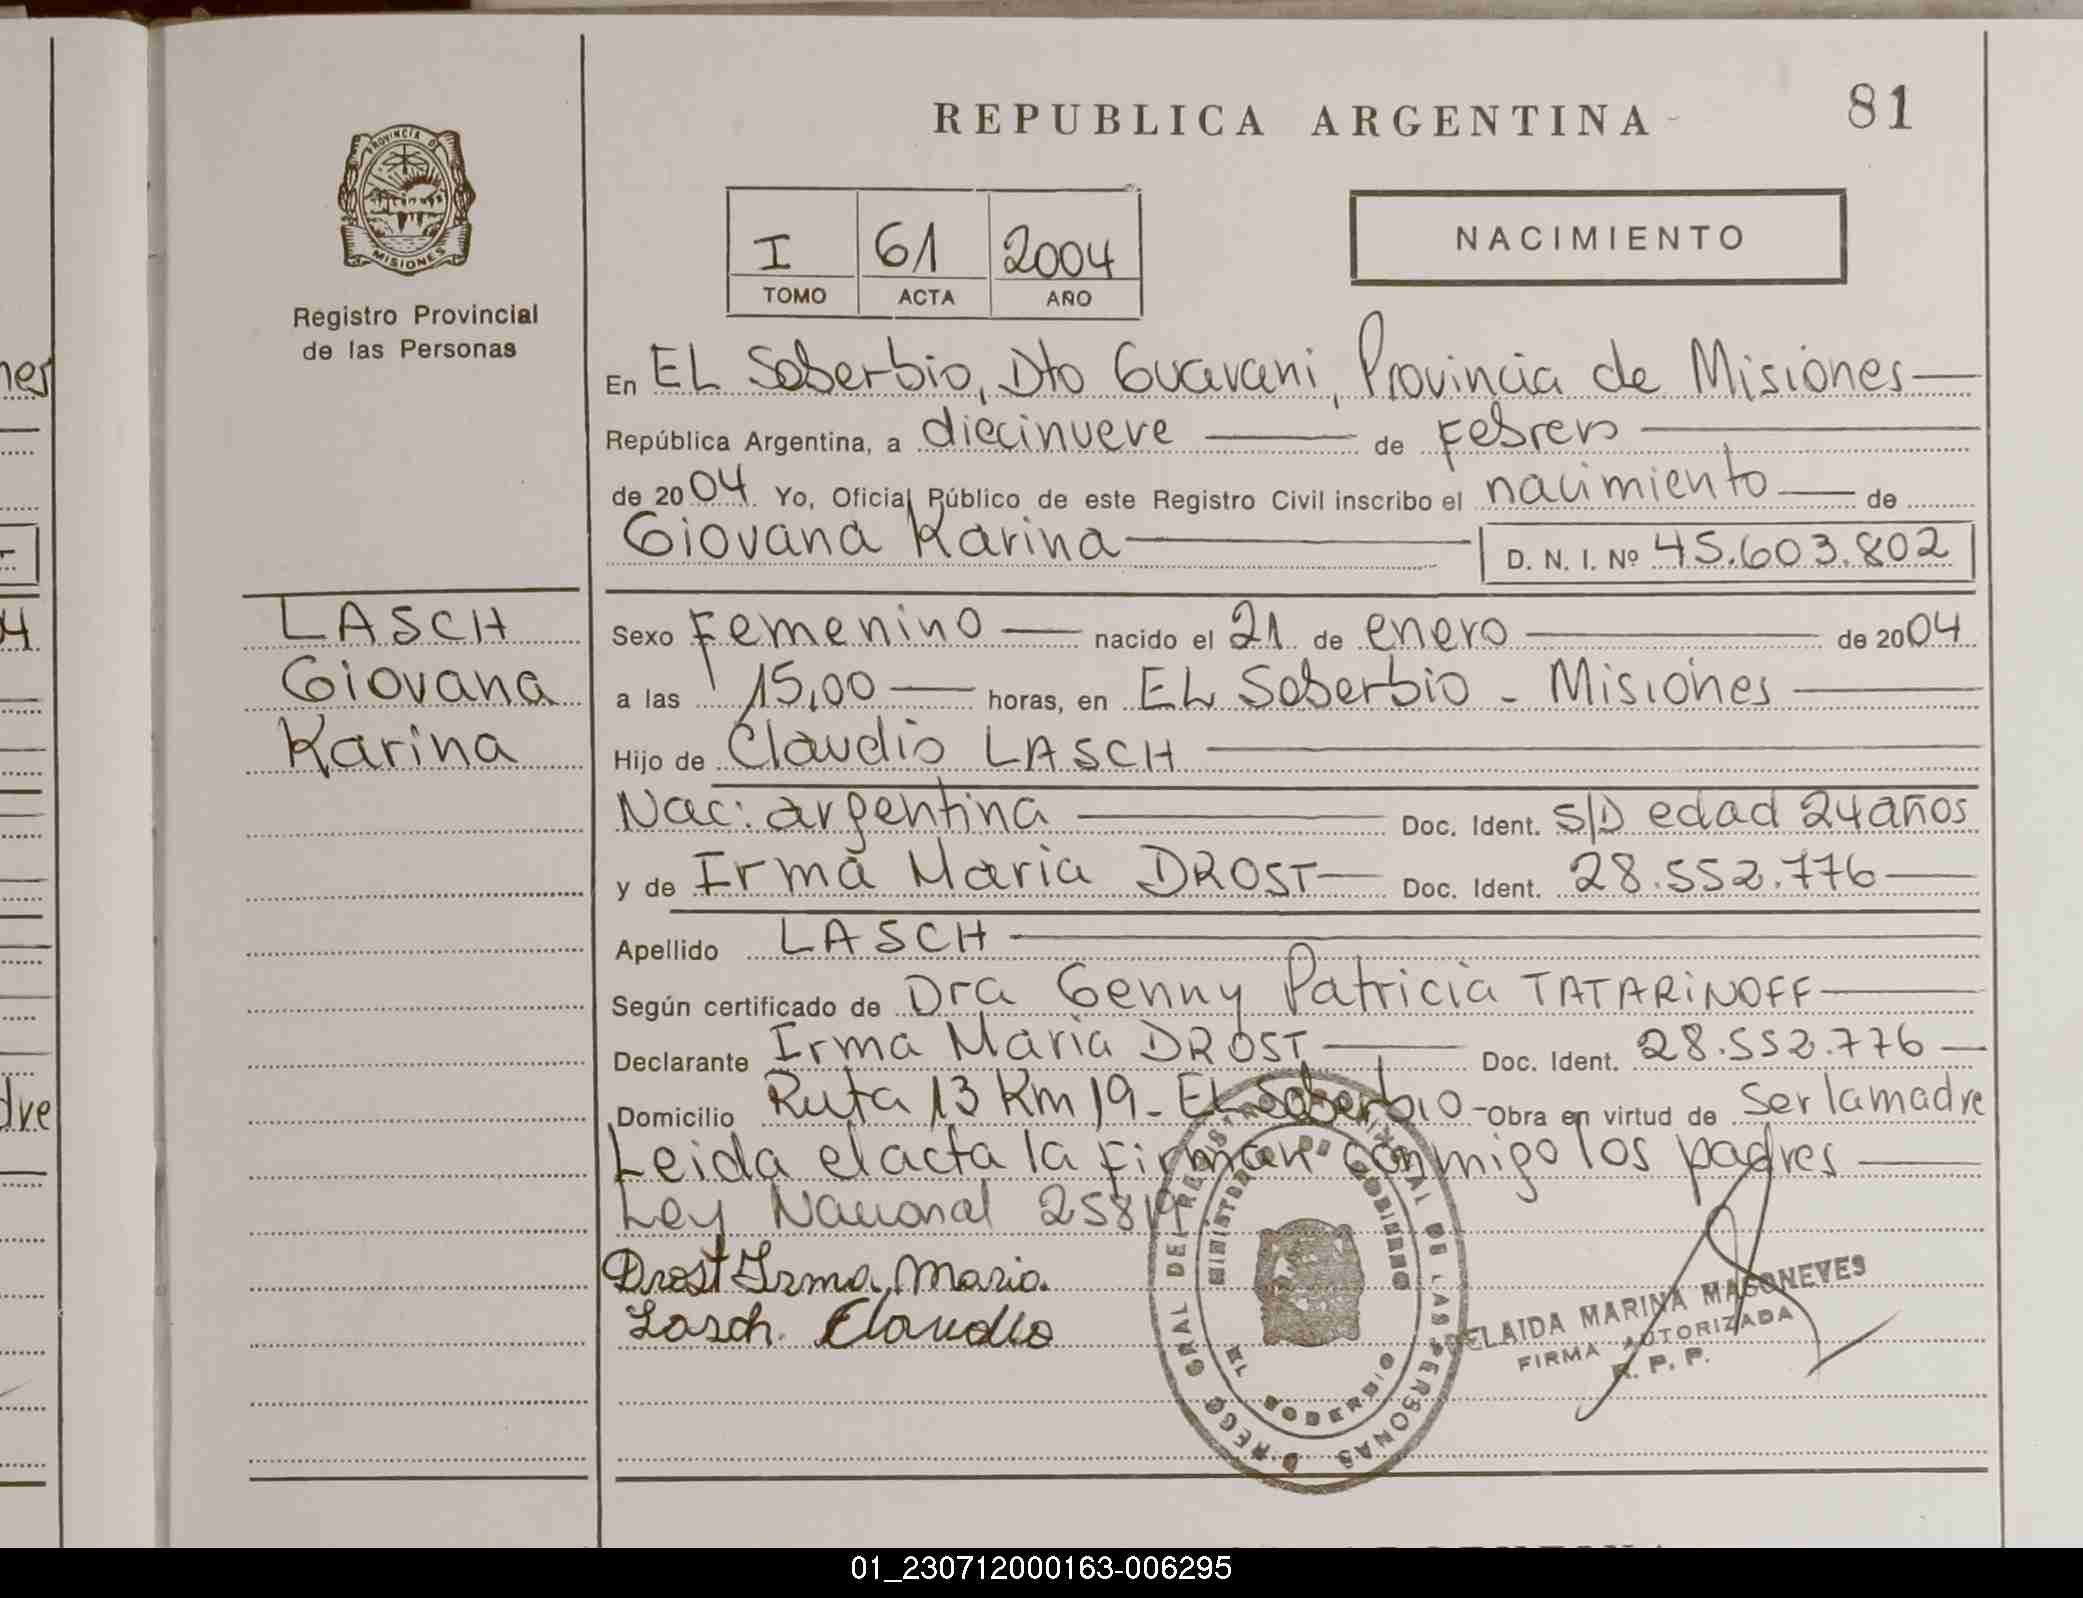 REPUBLICA ARGENTINA
81
PROVINCIA DE
MISIONES
Registro Provincial
de las Personas
I 61 2004
TOMO ACTA AÑO
NACIMIENTO
En EL Soberbio, Dto Guarani, Provincia de Misiones
República Argentina, a diecinueve de Febrero
de 2004 Yo, Oficial Público de este Registro Civil inscribo el nacimiento de
Giovana Karina D. N. I. Nº 45.603.802
LASCH
Giovana
Karina
Sexo Femenino nacido el 21 de enero de 2004
a las 15,00 horas, en EL Soberbio - Misiones
Hijo de Claudio LASCH
Nac: argentina Doc. Ident. S/D edad 24 años
y de Irma Maria DROST Doc. Ident. 28.552.776
Apellido LASCH
Según certificado de Dra Genny Patricia TATARINOFF
Declarante Irma Maria DROST Doc. Ident. 28.552.776
Domicilio Ruta 13 Km 19 - EL Soberbio - Obra en virtud de Ser la madre
Leida el acta la Firman conmigo los padres
Ley Nacional 25819
Drost Irma, Maria
Lasch. Claudio
GRAL DEL REGISTRO PROVINCIAL DE LAS PERSONAS
MINISTERIO DE GOBIERNO
EL SOBERBIO
ELAIDA MARINA MAGONEVES
FIRMA AUTORIZADA
R. P. P.
nes
04
dre
01_230712000163-006295